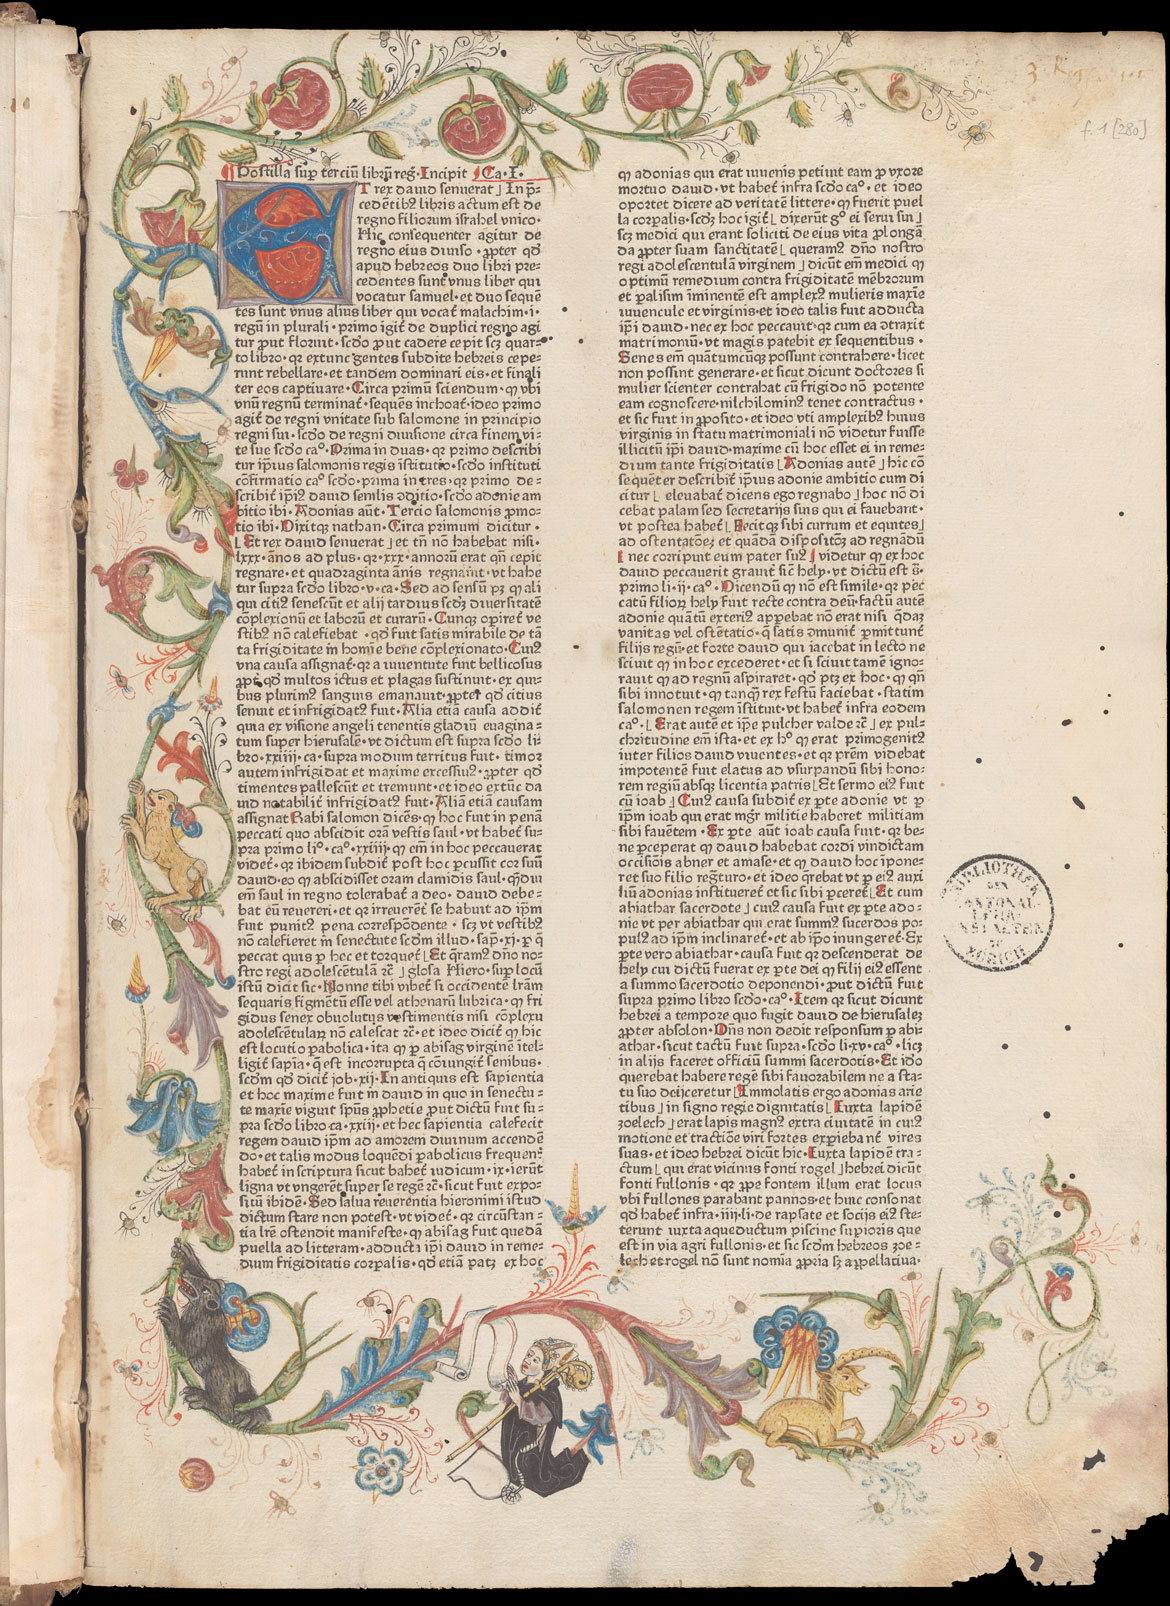 3 Regum 1
f. 1 [280]
Postilla sup̄ terciū librū reg̃·Incipit Ca·I·
T rex dauid senuerat ⌋ In p̄=
cedẽtibꝰ libris actum est de
regno filiorum israhel vnico·
Hic consequenter agitur de
regno eius diuiso·ꝓpter qd̄
apud hebreos duo libri pre=
cedentes sunt vnus liber qui
vocatur samuel·et duo sequē
tes sunt vnus alius liber qui vocat̃ malachim·i·
regū in plurali·primo igit̃ de duplici regno agi
tur ꝓut floruit·scd̄o ꝓut cadere cepit scꝫ quar=
to libro·qꝛ extunc gentes subdite hebreis cepe=
runt rebellare·et tandem dominari eis·et finali
ter eos captiuare·Circa primū sciendum·ꝙ vbi
vnū regnū terminat̃·sequēs inchoat̃·ideo primo
agit̃ de regni vnitate sub salomone in principio
regni sui·scd̄o de regni diuisione circa finem vi=
te sue scd̄o caº·Prima in duas·qꝛ primo describi
tur ip̄ius salomonis regis īstitutio·scd̄o instituti
cōfirmatio caº scd̄o·prima in tres·qꝛ primo de=
scribit̃ ip̄iꝰ dauid senilis ꝯditio·scd̄o adonie am
bitio ibi·Adonias aūt·Tercio salomonis ꝓmo=
tio ibi·Dixitqꝫ nathan·Circa primum dicitur·
⌊Et rex dauid senuerat ⌋ et tn̄ nō habebat nisi·
lxx·ānos ad plus·qꝛ·xxx·annorū erat qn̄ cepit
regnare·et quadraginta ānis regnauit·vt habe
tur supra scd̄o libro·v·ca·Sed ad sensū pꝫ ꝙ ali
qui citiꝰ senescūt et alij tardius scd̄ꝫ diuersitatē
cōplexionū et laborū et curarū·Cunqꝫ operiret̃ ve
stibꝰ nō calefiebat·qd̄ fuit satis mirabile de tā
ta frigiditate in homine bene cōplexionato·Cuiꝰ
vna causa assignat̃·qꝛ a iuuentute fuit bellicosus
ꝓpt̃ qd̄ multos ictus et plagas sustinuit·ex qui
bus plurimꝰ sanguis emanauit·ꝓpt̃ qd̄ citius
senuit et infrigidat̃ fuit·Alia etiā causa addit̃
quia ex visione angeli tenentis gladiū euagina=
tum super hierusalē·vt dictum est supra scd̄o li=
bro·xxiiij·ca·supra modum territus fuit·timor
autem infrigidat et maxime excessiuꝰ·ꝓpter qd̄
timentes pallescūt et tremunt·et ideo extūc da
uid notabilit̃ infrigidatꝰ fuit·Aliā etiā causam
assignat Rabi salomon dicēs·ꝙ hoc fuit in penā
peccati quo abscidit orā vestis saul·vt habet̃ su=
pra primo liº·caº·xxiiij·ꝙ em̄ in hoc peccauerat
videt̃·qꝛ ibidem subdit̃ post hoc percussit cor suū
dauid·eo ꝙ abscidisset oram clamidis saul·ꝙdiu
em̄ saul in regno tolerabat̃ a deo·dauid debe=
bat eū reuereri·et qꝛ irreuerēt̃ se habuit ad ip̄m
fuit punitꝰ pena correspōdente·scꝫ vt vestibꝰ
nō calefieret in senectute scd̄m illud·sap̄·xi·ꝑ q̄
peccat quis ꝑ hec et torquet̃ ⌊Et q̄ramꝰ dn̄o no=
stro regi adolescētulā ⁊c̄ ⌋ glosa Hiero·sup̄ locū
istū dicit sic·Nonne tibi videt̃ si occidentē lr̄am
sequaris figmētū esse vel athenarū lubrica·ꝙ fri
gidus senex obuolutus vestimentis nisi cōplexu
adolescētularꝫ nō calescat ⁊c̄·et ideo dicit̃ ꝙ hic
est locutio ꝑabolica·ita ꝙ ꝑ abisag virginē ītel=
ligit̃ sapīa·q̄ est incorrupta q̄ cōiungit̃ senibus·
scd̄m qd̄ dicit̃ iob·xij·In antiquis est sapientia
et hoc maxime fuit in dauid in quo in senectu=
te maxīe viguit sp̄us ꝓphetie ꝓut dictū fuit su=
pra scd̄o libro·ca·xxiij·et hec sapientia calefecit
regem dauid ip̄m ad amorem diuinum accendē
do·et talis modus loquēdi ꝑabolicus frequent̃
habet̃ in scriptura sicut habet̃ iudicum·ix·ierūt
ligna vt vngerēt super se regē ⁊c̄·sicut fuit expo=
sitū ibidē·Sed salua reuerentia hieronimi istud
dictum stare non potest·vt videt̃·qꝛ circūstan=
tia lr̄e ostendit manifeste·ꝙ abisag fuit quedā
puella ad litteram·adducta ip̄i dauid in reme=
dium frigiditatis corꝑalis·qd̄ etiā patꝫ ex hoc
ꝙ adonias qui erat iuuenis petiuit eam ꝓ vxore
mortuo dauid·vt habet̃ infra scd̄o caº·et ideo
oportet dicere ad veritatē littere·ꝙ fuerit puel
la corꝑalis·scd̄ꝫ hoc igit̃ ⌊ dixerūt gº ei serui sui ⌋
scꝫ medici qui erant soliciti de eius vita ꝓlongā
da ꝓpter suam sanctitatē ⌊ queramꝰ dn̄o nostro
regi adolescentulā virginem ⌋ dicūt em̄ medici ꝙ
optimū remedium contra frigiditatē mēbrorum
et ꝑalisim īminentē est amplexꝰ mulieris maxīe
iuuencule et virginis·et ideo talis fuit adducta
ip̄i dauid·nec ex hoc peccauit·qꝛ cum ea ꝯtraxit
matrimoniū·vt magis patebit ex sequentibus·
Senes em̄ quātumcūqꝫ possunt contrahere·licet
non possint generare·et sicut dicunt doctores si
mulier scienter contrahat cū frigido nō potente
eam cognoscere·nichilominꝰ tenet contractus·
et sic fuit in ꝓposito·et ideo vti amplexibꝰ huius
virginis in statu matrimoniali nō videtur fuisse
illicitū ip̄i dauid·maxime cū hoc esset ei in reme=
dium tante frigiditatis ⌊ Adonias autē ⌋ hic cō
sequēter describit̃ ip̄ius adonie ambitio cum di
citur ⌊ eleuabat̃ dicens ego regnabo ⌋ hoc nō di
cebat palam sed secretarijs suis qui ei fauebant·
vt postea habet̃ ⌊ Fecitqꝫ sibi currum et equites ⌋
ad ostentatōeꝫ et quādā dispositōꝫ ad regnādū
⌊ nec corripuit eum pater suꝰ ⌋ videtur ꝙ ex hoc
dauid peccauerit grauit̃ sic̄ hely·vt dictū est s̄·
primo li·ij·caº·Dicendū ꝙ nō est simile·qꝛ pec
catū filiorꝫ hely fuit recte contra deū·factū autē
adonie quātū exteriꝰ apꝑebat nō erat nisi q̄daꝫ
vanitas vel ostētatio·q̄ satis ꝯmunit̃ ꝑmittunt̃
filijs regū·et forte dauid qui iacebat in lecto ne
sciuit ꝙ in hoc excederet·et si sciuit tamē igno=
rauit ꝙ ad regnū aspiraret·qd̄ ptꝫ ex hoc·ꝙ qn̄
sibi innotuit·ꝙ tanqꝫ rex festū faciebat·statim
salomonen regem īstituit·vt habet̃ infra eodem
caº·⌊ Erat autē et ip̄e pulcher valde ⁊c̄ ⌋ ex pul=
chritudine em̄ ista·et ex hº ꝙ erat primogenitꝰ
inter filios dauid viuentes·et qꝛ prēm videbat
impotentē fuit elatus ad vsurpandū sibi hono=
rem regiū absqꝫ licentia patris ⌊ Et sermo eiꝰ fuit
cū ioab ⌋ Cuiꝰ causa subdit̃ ex ꝑte adonie vt ꝑ
ip̄m ioab qui erat mgr̄ militie haberet militiam
sibi fauētem·Ex ꝑte aūt ioab causa fuit·qꝛ be=
ne ꝑceperat ꝙ dauid habebat cordi vindictam
occisiōis abner et amase·et ꝙ dauid hoc īpone=
ret suo filio reg̃turo·et ideo q̄rebat vt ꝑ eiꝰ auxi
liū adonias institueret̃ et sic sibi ꝑceret̃ ⌊ Et cum
abiathar sacerdote ⌋ cuiꝰ causa fuit ex ꝑte ado=
nie vt per abiathar qui erat summꝰ sacerdos po=
pulꝰ ad ip̄m inclinaret̃·et ab ip̄o inungeret̃·Ex
ꝑte vero abiathar·causa fuit qꝛ descenderat de
hely cui dictū fuerat ex ꝑte dei ꝙ filij eiꝰ essent
a summo sacerdotio deponendi·ꝓut dictū fuit
supra primo libro scd̄o·caº·Item qꝛ sicut dicunt
hebrei a tempore quo fugit dauid de hierusaleꝫ
ꝓpter absolon·Dn̄s non dedit responsum ꝑ abi
athar·sicut tactū fuit supra·scd̄o li·xv·caº·licꝫ
in alijs faceret officiū summi sacerdotis·Et idō
querebat habere regē sibi fauorabilem ne a sta=
tu suo deijceretur ⌊ Immolatis ergo adonias arie
tibus ⌋ in signo regie dignitatis ⌊ Iuxta lapidē
zoelech ⌋ erat lapis magnꝰ extra ciuitatē in cuiꝰ
motione et tractiōe viri fortes exꝑiebant̃ vires
suas·et ideo hebrei dicūt hic·Iuxta lapidē tra=
ctum ⌊ qui erat vicinus fonti rogel ⌋ hebrei dicūt
fonti fullonis·qꝛ ꝓpe fontem illum erat locus
vbi fullones parabant pannos·et huic consonat
qd̄ habet̃ infra·iiij·li·de rapsate et socijs eiꝰ ste=
terunt iuxta aqueductum piscine suꝑioris que
est in via agri fullonis·et sic scd̄m hebreos zoe=
lech et rogel nō sunt nomīa ꝓpria sꝫ appellatiua·
BIBLIOTHEK
DER
KANTONAL
LEHR-
ANSTALTEN
IN
ZÜRICH